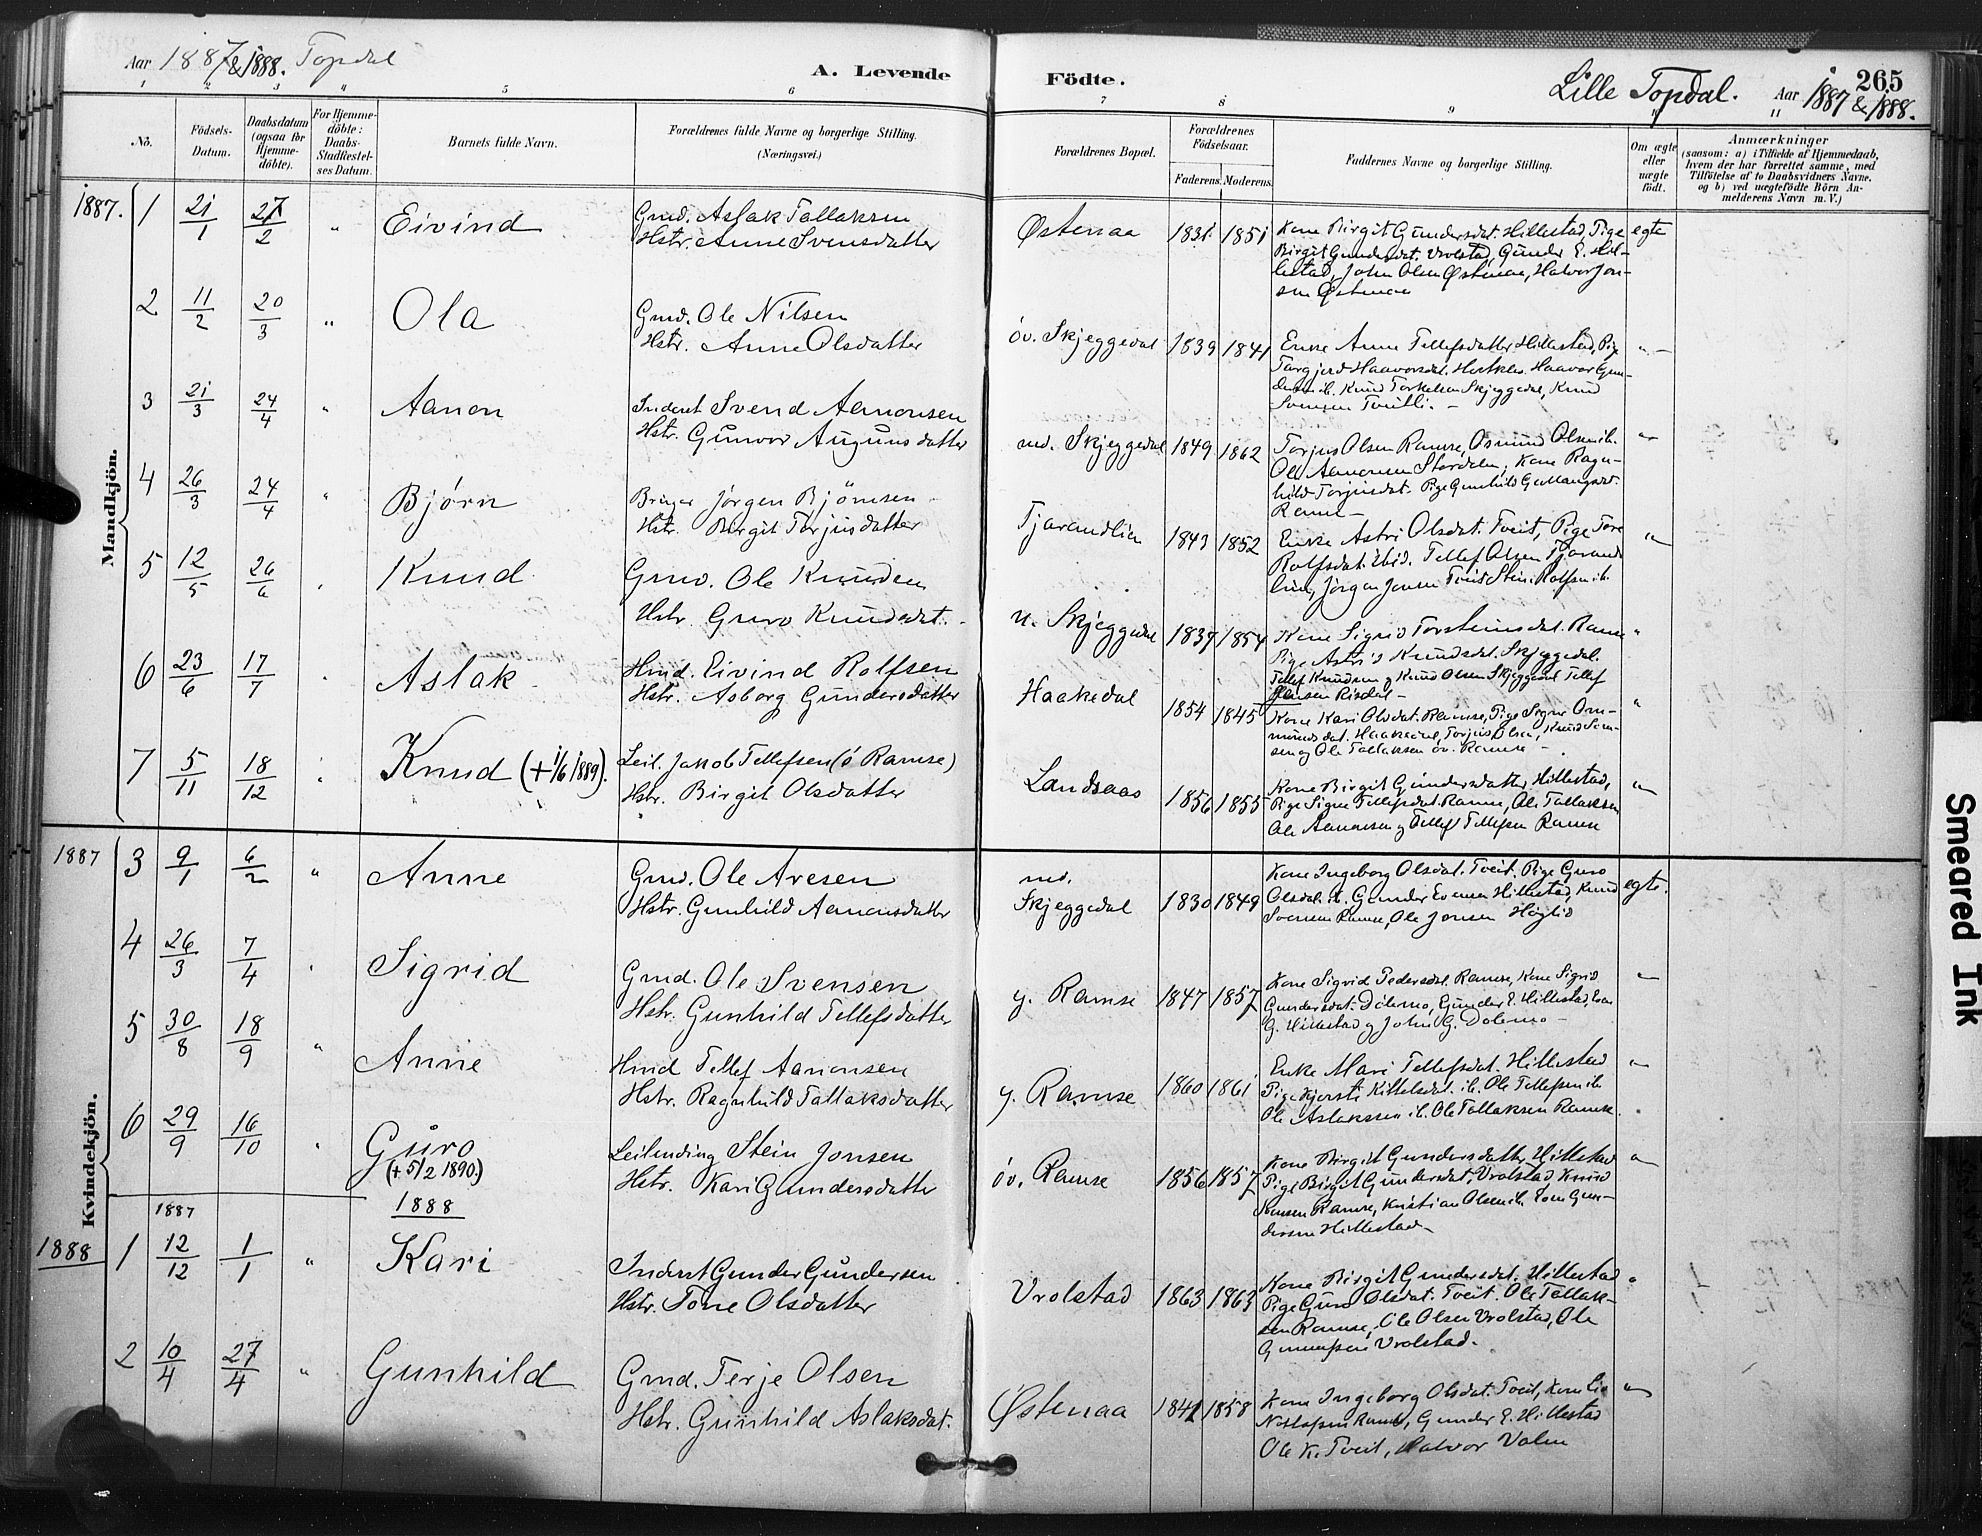 Aar 1887 & 1888. Topdal
A. Levende Födte.
Lille Topdal. Aar 1887 & 1888.
265
1 2 3 4 5 6 7 8 9 10 11
No.
Födsels-Datum.
Daabsdatum (ogsaa for Hjemmedöbte).
For Hjemmedöbte: Daabs-Stadfæstelses Datum.
Barnets fulde Navn.
Forældrenes fulde Navne og borgerlige Stilling. (Næringsvei.)
Forældrenes Bopæl.
Forældrenes Födselsaar.
Faderens. Moderens.
Faddernes Navne og borgerlige Stilling.
Om ægte eller uægte födt.
Anmærkninger
(saasom: a) i Tilfælde af Hjemmedaab, hvem der har forrettet samme, med Tilföielse af to Daabsvidners Navne, og b) ved uegtefödte Börn Anmelderens Navn m. V.)
Mandkjön.
1887. 1 21/1 27/2 " Eivind Gmd. Aslak Tallaksen Østenaa 1831 1851 Kone Birgit Gundersdat. Hillestad, Pige egte
Hstr. Anne Svensdatter Birgit Gundersdat. Vrolstad, Gunder E. Hil-
lestad, John Olsen Østenaa, Halvor Jon-
sen Østenaa
2 11/2 20/3 " Ola Gmd. Ole Nilsen öv. Skjeggedal 1839 1841 Enke Anne Tellefsdatter Hillestad, Pige "
Hstr. Anne Olsdatter Targjerd Haavorsdat. Haavor Gun-
dersen ib. Knud Torkelsen Skjeggedal, Knud
Svensen Tveitli.
3 21/3 24/4 " Aanon Inderst Svend Aanonsen md. Skjeggedal 1849 1862 Torjus Olsen Ramse, Osmund Olsen ib. "
Hstr. Gunvor Augunsdatter Ole Aanonsen Stordalen, Kone Ragn-
hild Torjusdat. Pige Gunhild
Ramse
4 26/3 24/4 " Bjørn Bruger Jörgen Bjömsen Tjarandlien 1843 1852 Enke Astri Olsdat. Tveit, Pige Tore "
Hstr. Birgit Torjusdatter Rolfsdat. ibid. Tellef Olsen Tjarand-
lien, Jörgen Jonsen Tveit Stein Rolfsen ib.
5 12/5 26/6 " Knud Gmd. Ole Knudsen n. Skjeggedal 1839 1854 Kone Sigrid Torsteinsdat. Ramse "
Hstr. Guro Knudsdat. Pige Astrid Knudsdat. Skjeggedal.
Tellef Knudsen og Knud Olsen Skjeggedal Tellef
Jensen Risdal
6 23/6 17/7 " Aslak Hmd. Eivind Rolfsen Haakedal 1854 1845 Kone Kari Olsdat. Ramse, Pige Signe Om- "
Hstr. Asborg Gundersdatter mundsdat. Haakedal, Torjus Olsen, Knud Sven-
sen og Ole Tallaksen öv. Ramse
7 5/11 18/12 " Knud (+ 1/6 1889). Leil. Jakob Tellefsen (ö Ramse) Landsaas 1856 1855 Kone Birgit Gundersdatter Hillestad, "
Hstr. Birgit Olsdatter Pige Signe Tellefsdat. Ramse, Ole Tallaksen
Ole Aanonsen og Tellef Tellefsen Ramse
Kvindekjön.
1887 3 9/1 6/2 " Anne Gmd. Ole Avesen md. Skjeggedal 1830 1849 Kone Ingeborg Olsdat. Tveit. Pige Guro egte.
Hstr. Gunhild Aanonsdatter Olsdat. st. Gunder Evensen Hillestad, Knud
Svensen Ramse, Ole Jonsen Høgli
4 26/3 7/4 " Sigrid Gmd. Ole Svensen y. Ramse 1847 1857 Kone Sigrid Pedersdat. Ramse, Kone Sigrid "
Hstr. Gunhild Tellefsdatter Gundersdat. Dölemo, Gunder E. Hillestad, Even
G. Hillestad og John G. Dölemo
5 30/8 18/9 " Anne Hmd Tellef Aanonsen y. Ramse 1860 1861 Enke Mari Tellefsdat. Hillestad "
Hstr. Ragnhild Tallaksdatter Pige Kjersti Kittelsdat. ib. Ole Tellefsen ib.
Ole Aslakssen ib. Ole Tallaksen Ramse.
6 29/9 16/10 " Guro Leilending Stein Jonsen öv. Ramse 1856 1857 Kone Birgit Gundersdatter Hillestad "
(+ 5/2 1890.) Hstr. Kari Gundersdatter Pige Birgit Gundersdat. Vrolstad Knud
Ramse, Kristian Olsen ib. Even Gun-
dersen Hillestad
1888
1887
1888 1 12/12 1/1 " Kari Inderst Gunder Gundersen Vrolstad 1863 1863 Kone Birgit Gundersdat. Hillestad "
Hstr. Tone Olsdatter Pige Guro Olsdat. Tveit. Ole Tallak-
sen Ramse, Ole Olsen Vrolstad, Ole
Vrolstad.
2 10/4 27/4 " Gunhild Gmd. Terje Olsen Østenaa 1841 1858 Kone Ingeborg Olsdat. Tveit, Kone "
Hstr. Gunhild Aslaksdat. Ramse, Gunder E. Hillestad
Ole K. Tveit, Halvor Valen
Smeared Ink